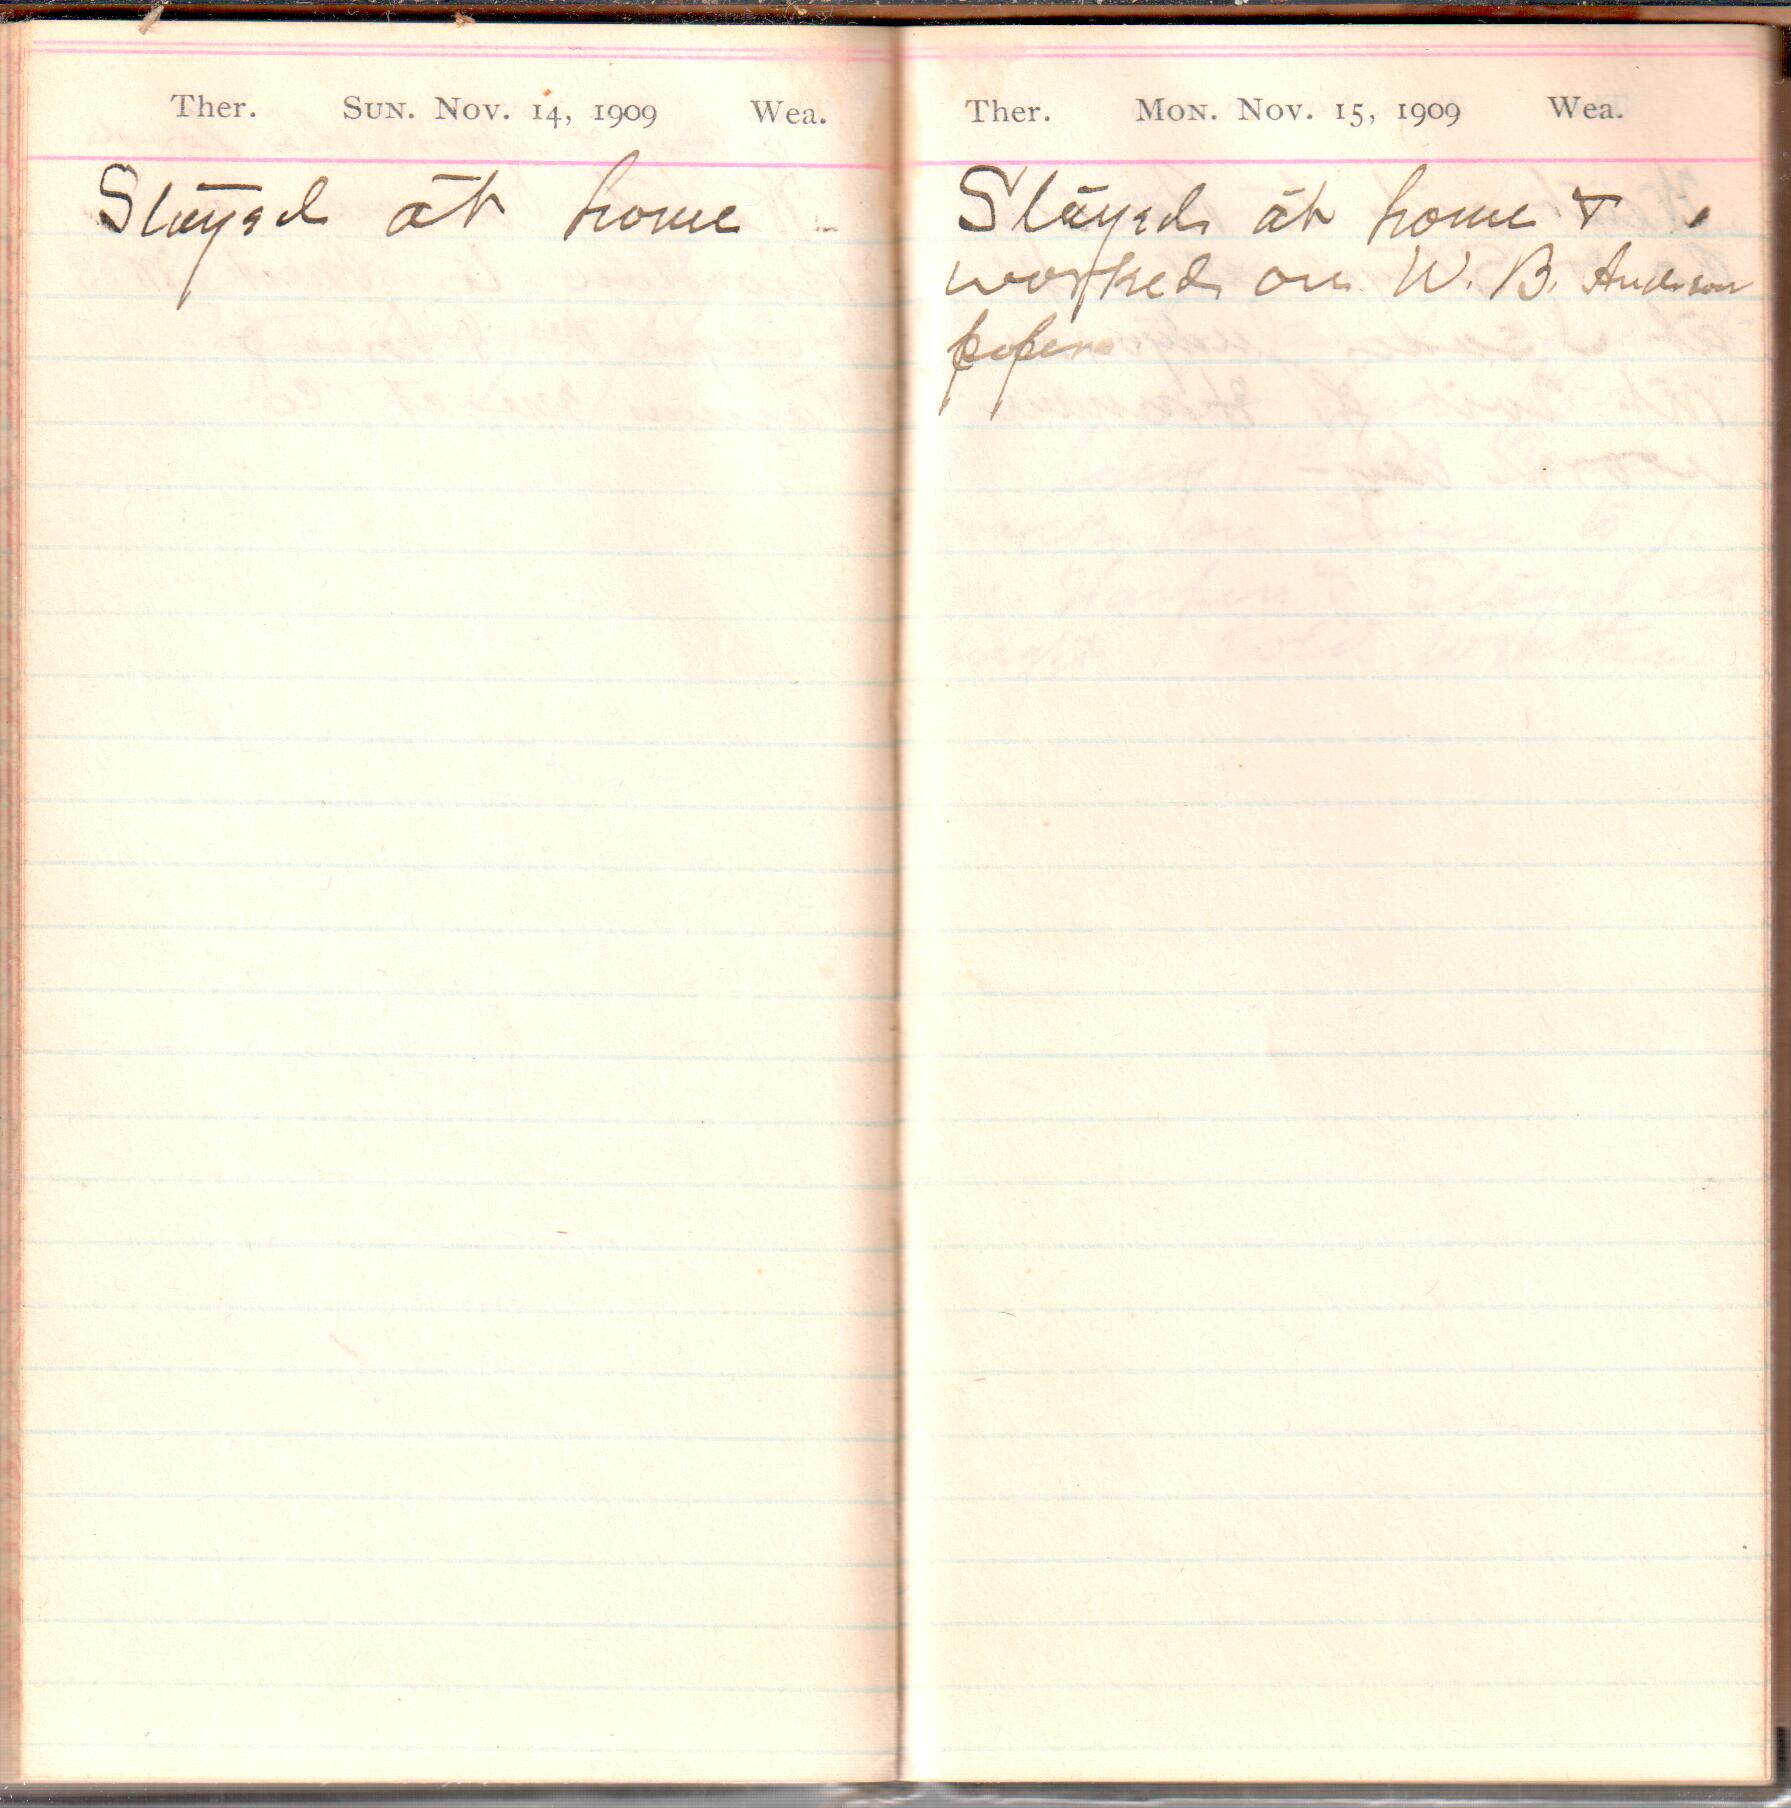 Ther. Sun. Nov. 14, 1909 Wea.
Stayed at home
Ther. Mon. Nov. 15, 1909 Wea.
Stayed at home &
worked on W. B. Anderson
papers